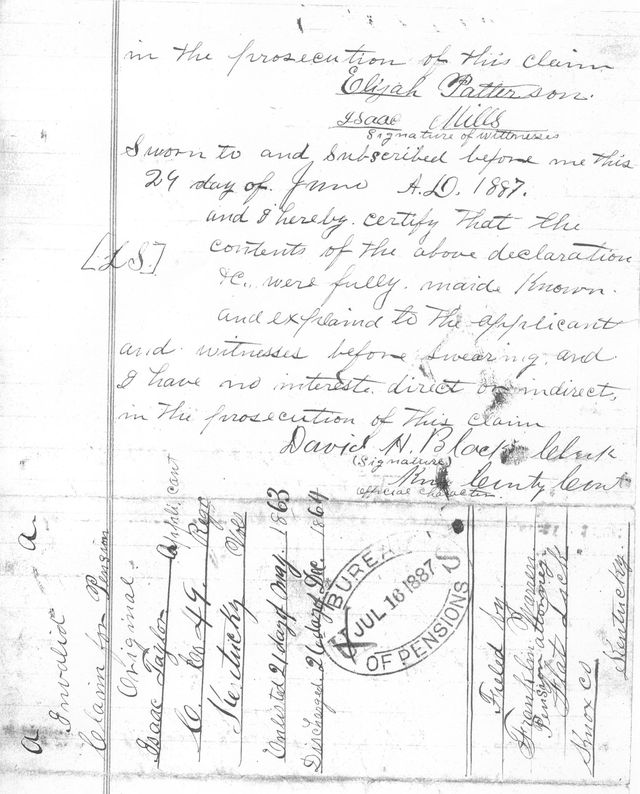 in the prosecution of this claim
Elijah Patterson.
Isaac Mills
Signature of wittnesses
Sworn to and Subscribed before me this
24 day of June A.D. 1887.
and I hereby certify that the
[L S.] contents of the above declaration
&c., were fully maide Known
and explaind to the applicant
and witnesses before swearing and
I have no interest direct or indirect,
in the prosecution of this claim
David H. Black Clerk
(Signature)
Knox County Court
official character.
A A
Invalid
Claim for Pension
Original
Isaac Taylor applicant
C. Co 49. Regt
Kentucky Vols
Enlisted 21 day of May 1863
Discharged 26 day of Dec. 1864
BUREAU OF PENSIONS
JUL 16 1887
Filed by
Franklin Warren
Pension attorney
Flat Lick
Knox co
Kentucky